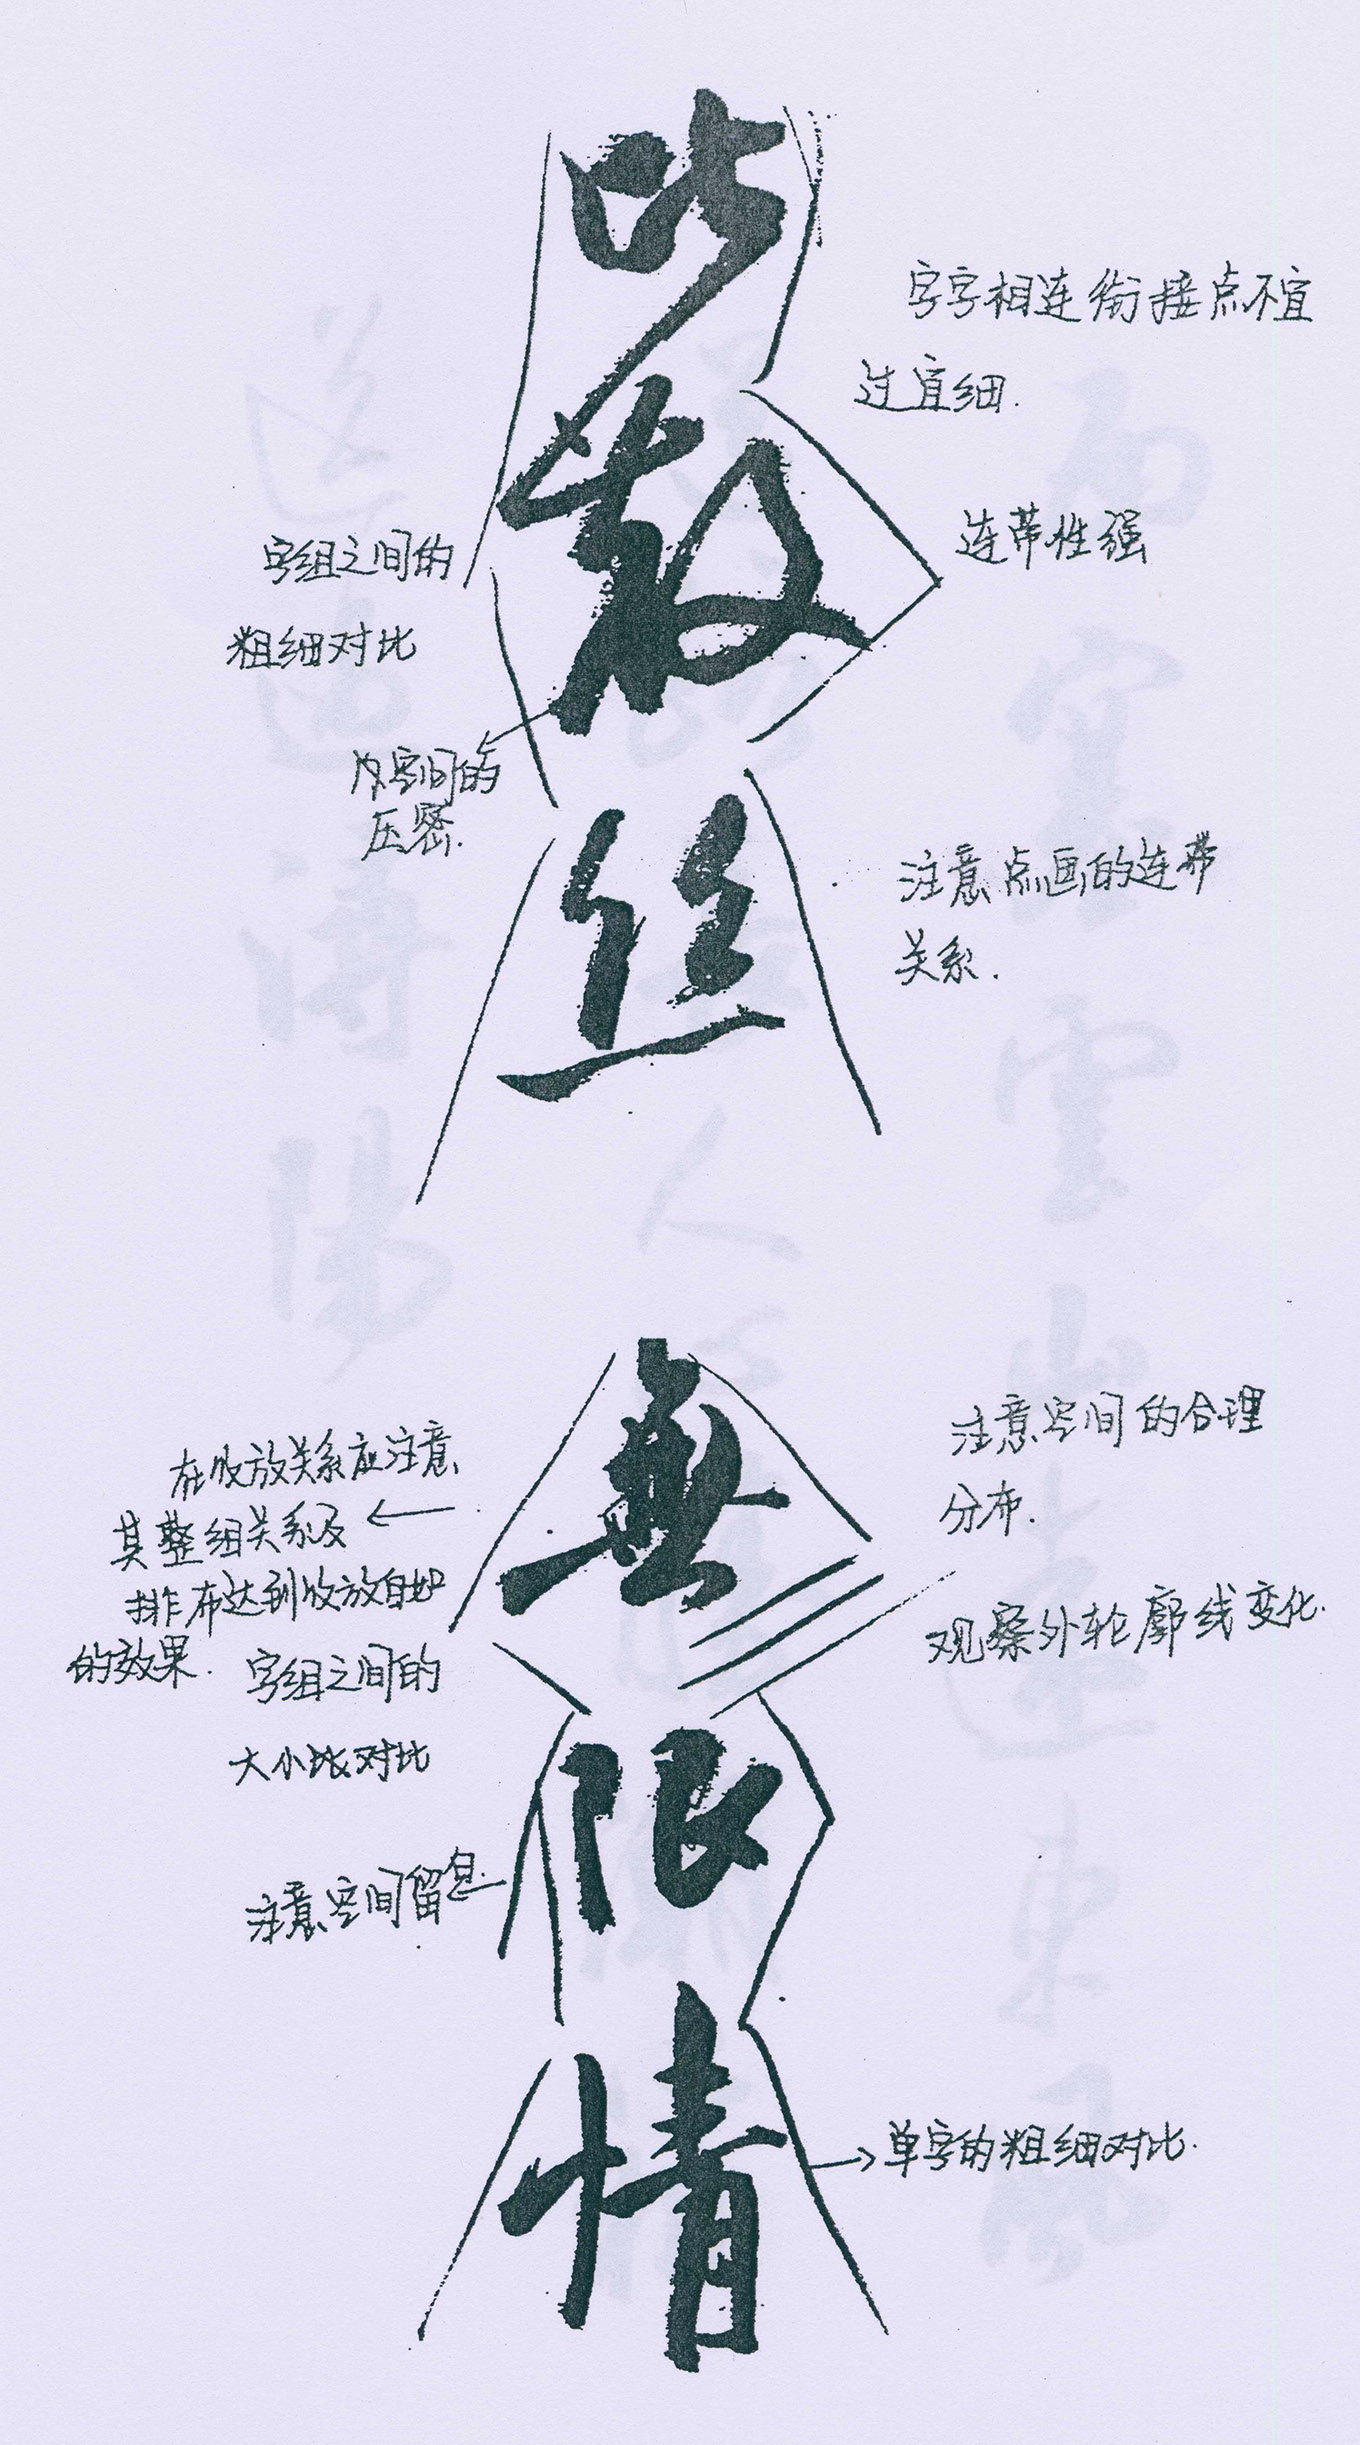 以
散
丝
無
限
情
字字相连衔接点不宜
过宜细.
连带性强
字组之间的
粗细对比
内空间的
压密.
注意点画的连带
关系.
在收放关系应注意
其整组关系及
排布达到收放自如
的效果.
注意空间的合理
分布.
观察外轮廓线变化.
字组之间的
大小对比
注意空间留
单字的粗细对比.